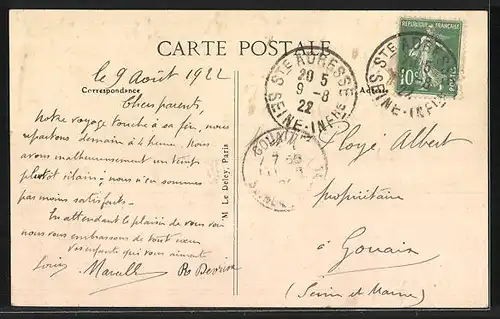 CARTE POSTALE
Correspondance
le 9 Août 1922
Chers parents,
Notre voyage touche à sa fin, nous
repartons demain à heure. Nous
avons malheureusement un temps
plutôt vilain; nous n'en sommes
pas moins satisfaits.
En attendant le plaisir de vous voir
nous vous embrassons de tout cœur
vos enfants qui vous aiment
Louis Marcelle
M. Le Deley, Paris
STE ADRESSE
20 5
9-8
22
SEINE-INFRE
REPUBLIQUE FRANÇAISE
10c
POSTES
STE ADRESSE
SEINE-INFRE
GOUAIX
Ployé Albert
propriétaire
à Gouaix
(Seine et Marne)